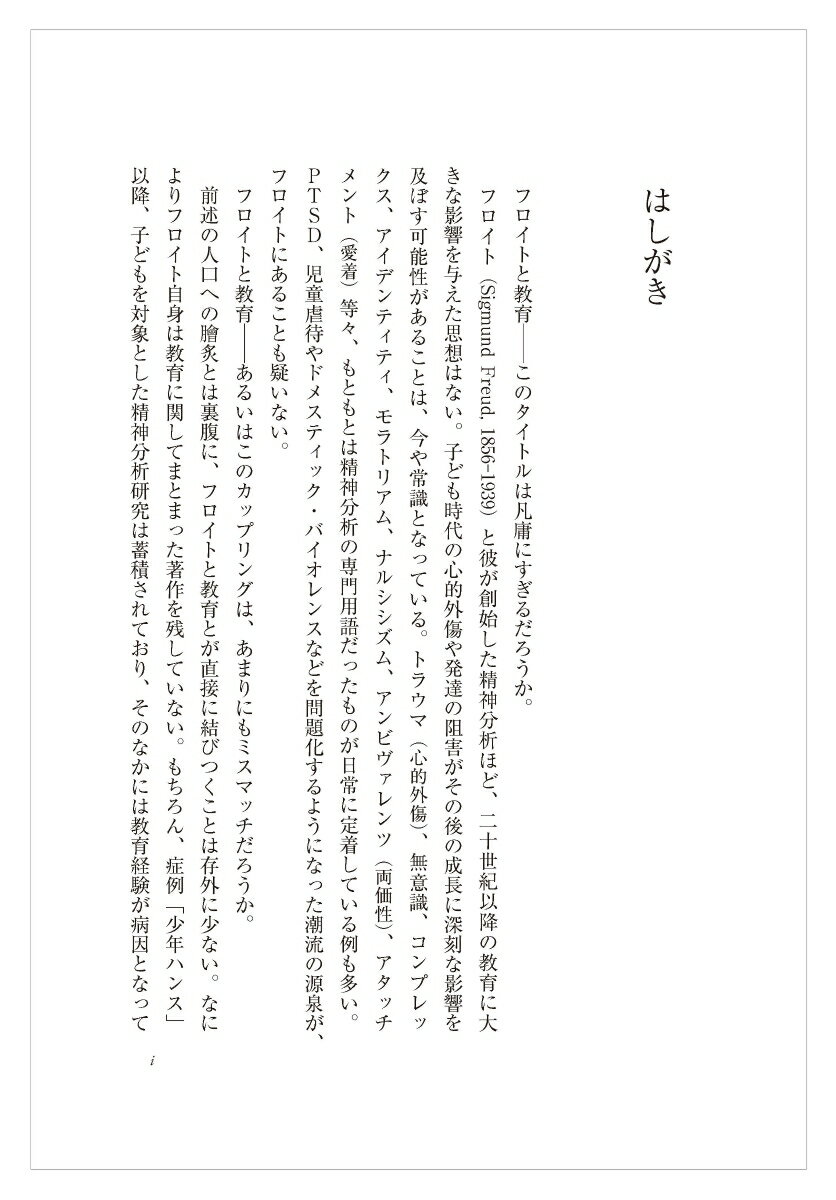 はしがき
フロイトと教育――このタイトルは凡庸にすぎるだろうか。
フロイト（Sigmund Freud, 1856-1939）と彼が創始した精神分析ほど、二十世紀以降の教育に大
きな影響を与えた思想はない。子ども時代の心的外傷や発達の阻害がその後の成長に深刻な影響を
及ぼす可能性があることは、今や常識となっている。トラウマ（心的外傷）、無意識、コンプレッ
クス、アイデンティティ、モラトリアム、ナルシシズム、アンビヴァレンツ（両価性）、アタッチ
メント（愛着）等々、もともとは精神分析の専門用語だったものが日常に定着している例も多い。
PTSD、児童虐待やドメスティック・バイオレンスなどを問題化するようになった潮流の源泉が、
フロイトにあることも疑いない。
フロイトと教育――あるいはこのカップリングは、あまりにもミスマッチだろうか。
前述の人口への膾炙とは裏腹に、フロイトと教育とが直接に結びつくことは存外に少ない。なに
よりフロイト自身は教育に関してまとまった著作を残していない。もちろん、症例「少年ハンス」
以降、子どもを対象とした精神分析研究は蓄積されており、そのなかには教育経験が病因となって
i